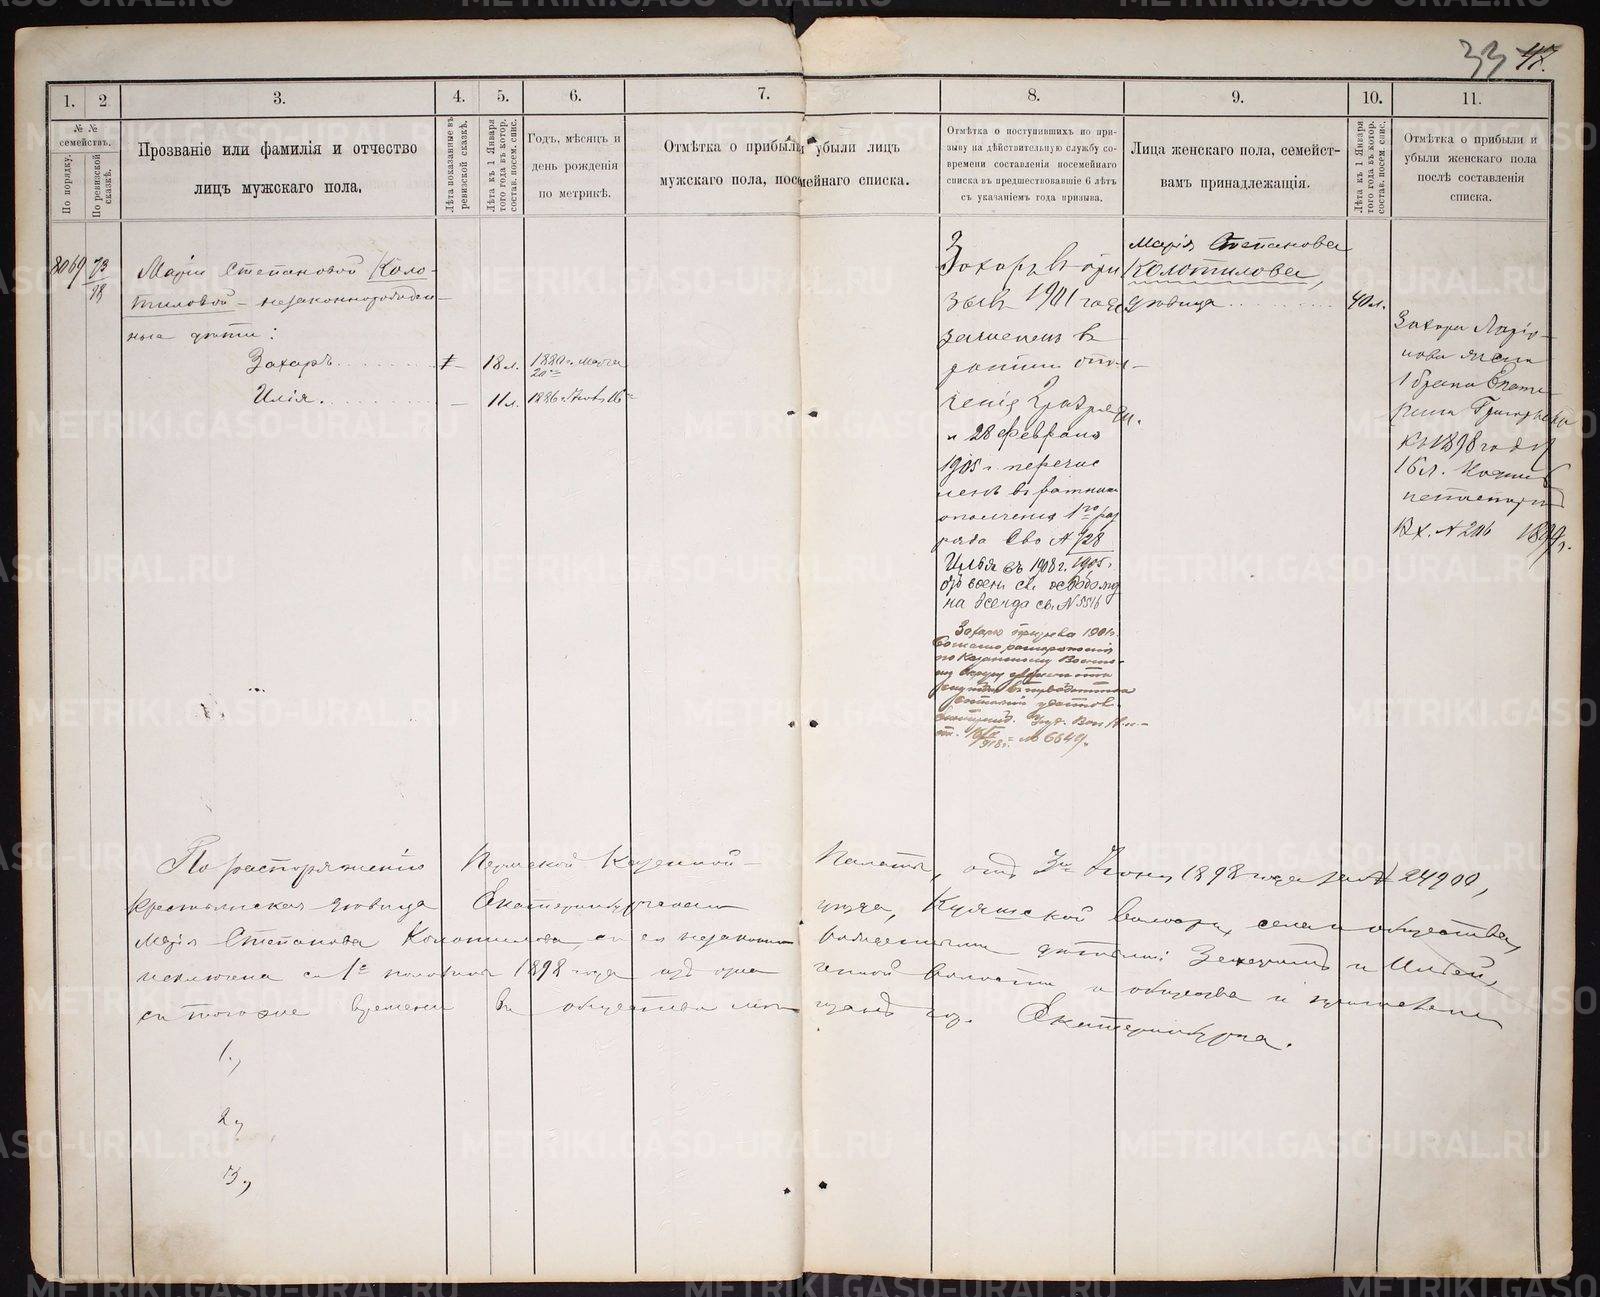 33 47.
1. 2 3. 4. 5. 6. 7. 8. 9. 10. 11.
№ №
семействъ.
По порядку.
По ревизской
сказкѣ.
Прозваніе или фамилія и отчество
лицъ мужскаго пола.
Лѣта показанные въ
ревизской сказкѣ.
Лѣта къ 1 Января
того года въ котор.
состав. посем. спис.
Годъ, мѣсяцъ и
день рожденія
по метрикѣ.
Отмѣтка о прибыли убыли лицъ
мужскаго пола, посемейнаго списка.
Отмѣтка о поступившихъ по при-
зыву на дѣйствительную службу со-
времени составленія посемейнаго
списка въ предшествовавшіе 6 лѣтъ
съ указаніемъ года призыва.
Лица женскаго пола, семейст-
вамъ принадлежащія.
Лѣта къ 1 Января
того года въ котор.
состав. посем. спис.
Отмѣтка о прибыли и
убыли женскаго пола
послѣ составленія
списка.
8069 73
78
Маріи Степановой Коло-
тиловой - незаконнорожден-
ные дѣти:
Захаръ 18 л. 1880 г. Марта
Илія. 11 л. 1886 г.
Захаръ въ при
зывъ 1901 года
зачисленъ въ
ратники опол-
ченія 2 разряда.
и 28 февраля
1905 г. перечис
ленъ въ ратники
ополченія 1го раз
ряда Сво № 728
1905 г.
Илья въ 1908 г.
отъ воен сл. освобожд
на всегда св. № 5516
Захаръ призыва 1901 г.
по Казанскому Военно-
му Округу
№ 6649.
Марія Степанова
Колотилова,
дѣвица 40 л.
Захара Ларіо-
нова жена
1 брака Екате-
рина Григорьева
къ 1898 году
16 л.
Вх. № 206 1899 г.
По распоряженію Пермской Казенной Палаты, отъ 3 Іюня 1898 года за № 24900,
крестьянская дѣвица Екатеринбургскаго уѣзда, Куяшской волости, села и общества,
Марія Степанова Колотилова, съ ея незаконно рожденными дѣтьми: Захаромъ и Ильей,
исключена съ 1й половины 1898 года изъ озна ченной волости и общества и причислена
съ того же времени въ общество мѣ щанъ гор. Екатеринбурга.
1.,
2.,
3.,
METRIKI.GASO-URAL.RU